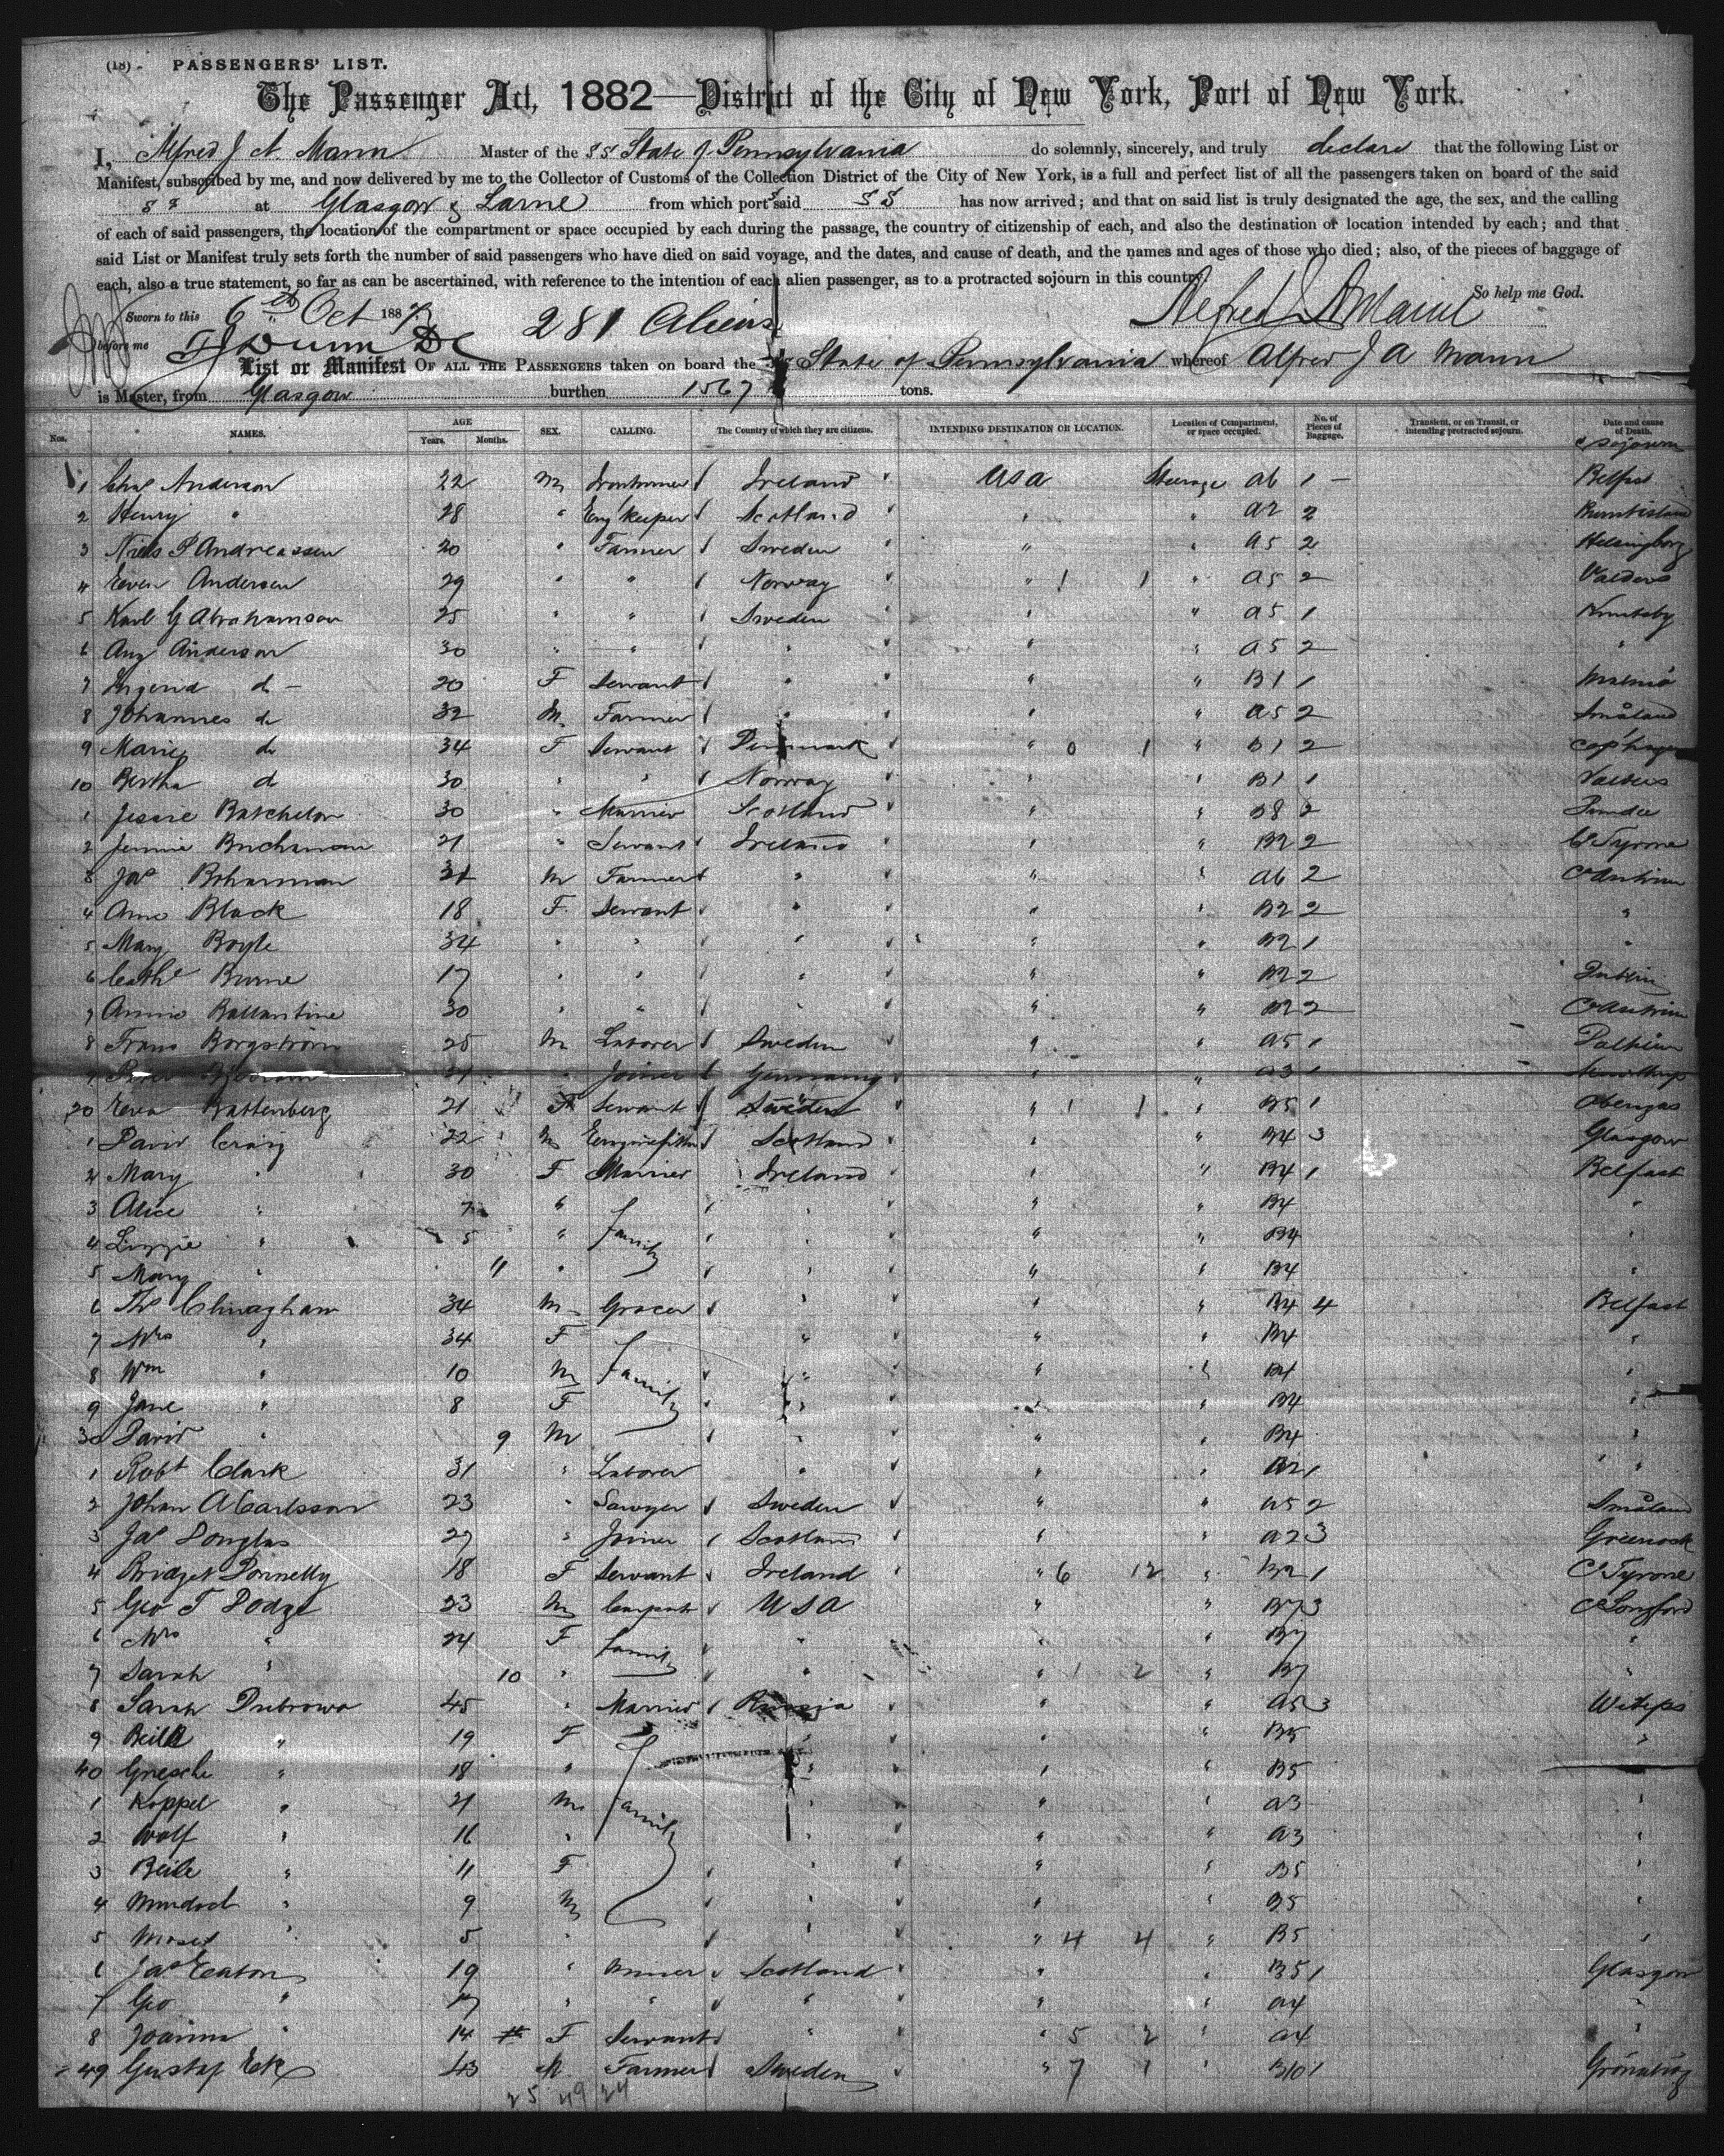 (18) PASSENGERS' LIST.
The Passenger Act, 1882—District of the City of New York, Port of New York.
I, Alfred J A. Mann Master of the SS State of Pennsylvania do solemnly, sincerely, and truly declare that the following List or
Manifest, subscribed by me, and now delivered by me to the Collector of Customs of the Collection District of the City of New York, is a full and perfect list of all the passengers taken on board of the said
SS at Glasgow & Larne from which port said SS has now arrived; and that on said list is truly designated the age, the sex, and the calling
of each of said passengers, the location of the compartment or space occupied by each during the passage, the country of citizenship of each, and also the destination or location intended by each; and that
said List or Manifest truly sets forth the number of said passengers who have died on said voyage, and the dates, and cause of death, and the names and ages of those who died; also, of the pieces of baggage of
each, also a true statement, so far as can be ascertained, with reference to the intention of each alien passenger, as to a protracted sojourn in this country.
So help me God.
Sworn to this 6th Oct 1887 281 Aliens Alfred J A Mann
before me
List or Manifest OF ALL THE PASSENGERS taken on board the SS State of Pennsylvania whereof Alfred J A Mann
is Master, from Glasgow burthen 1567 tons.
Nos. NAMES. AGE Years. Months. SEX. CALLING. The Country of which they are citizens. INTENDING DESTINATION OR LOCATION. Location of Compartment, or space occupied. No. of Pieces of Baggage. Transient, or on Transit, or intending protracted sojourn. Date and cause of Death.
sojourn
1 Chas Anderson 22 M Ironturner Ireland USA Steerage A6 1 – Belfast
2 Henry " 28 " Eng keeper Scotland " " A2 2 Burntisland
3 Niels P Andreassen 20 " Farmer Sweden " " A5 2 Helsingborg
4 Even Andersen 29 " " Norway " 1 1 " A5 2 Valders
5 Karl G Abrahamson 25 " " Sweden " " A5 1
6 Aug Anderson 30 " " " " " A5 2 "
7 do – 20 F Servant " " " B1 1 Malmö
8 Johannes do 32 M Farmer " " " A5 2 Småland
9 Marie do 34 F Servant Denmark " 0 1 " B1 2 Cop'hagen
10 Bertha do 30 " " Norway " " B1 1 Valders
1 Jessie Batchelor 30 " Married Scotland " " B8 2 Dundee
2 Jennie Buchanan 21 " Servant Ireland " " B2 2 Co Tyrone
3 Jas Bohannan 31 M Farmer " " " A6 2 Co Antrim
4 Ann Black 18 F Servant " " " B2 2 "
5 Mary Boyle 34 " " " " " B2 1 "
6 Cathe Burne 17 " " " " " B2 2 Dublin
7 Annie Ballantine 30 " " " " " B2 2 Co Antrim
8 Frans Borgstrom 25 M Laborer Sweden " " A5 1
9 Peter Joiner Germany " " A3 1
20 Eva Battenberg 21 F Servant Sweden " 1 1 " B5 1
1 David Craig 22 M Enginefitter Scotland " " B4 3 Glasgow
2 Mary " 30 F Married Ireland " " B4 1 Belfast
3 Alice " 7 " Family " " " B4 "
4 Lizzie " 5 " " " " B4 "
5 Mary " 11 " " " " B4 "
6 Ths Clinaghan 34 M Grocer " " " B4 4 Belfast
7 Mrs " 34 F Family " " " B4 "
8 Wm " 10 M " " " B4 "
9 Jane " 8 F " " " B4 "
30 David " 9 M " " " B4 "
1 Robt Clark 31 " Laborer " " " B2 1 "
2 Johan A Carlsson 23 " Sawyer Sweden " " A5 2 Småland
3 Jas Douglas 27 " Joiner Scotland " " A2 3 Greenock
4 Bridget Donnelly 18 F Servant Ireland " 6 12 " B2 1 Co Tyrone
5 Geo T Dodge 23 M Carpent USA " " B7 3 Co Longford
6 Mrs " 24 F Family " " " B7 "
7 Sarah " 10 " " " 1 2 " B7 "
8 Sarah Dubrowa 45 " Married Russia " " A5 3 Witeps
9 Beila " 19 F Family " " " B5 "
40 Gnesche " 18 " " " " B5
1 Koppel " 21 M " " " A3 "
2 Wolf " 16 " " " " A3 "
3 Beile " 11 F " " " B5 "
4 Murdoch " 9 M " " " B5 "
5 Moses " 5 " " " 4 4 " B5 "
6 Jas Eaton 19 " Miner Scotland " " B5 1 Glasgow
7 Geo " 17 " " " " " A4 "
8 Joanna " 14 F Servant " " 5 2 " A4 "
49 Gustaf Ek 43 M Farmer Sweden " 7 1 " B10 1
25 49 24